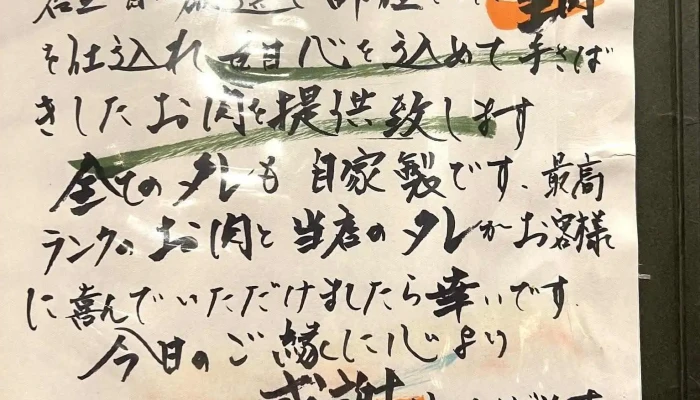 を仕込れ真心を込めて手さば
きしたお肉を提供致します
全てのタレも自家製です、最高
ランクのお肉と当店のタレがお客様
に喜んでいただけましたら幸いです
今日のご縁に心より
感謝